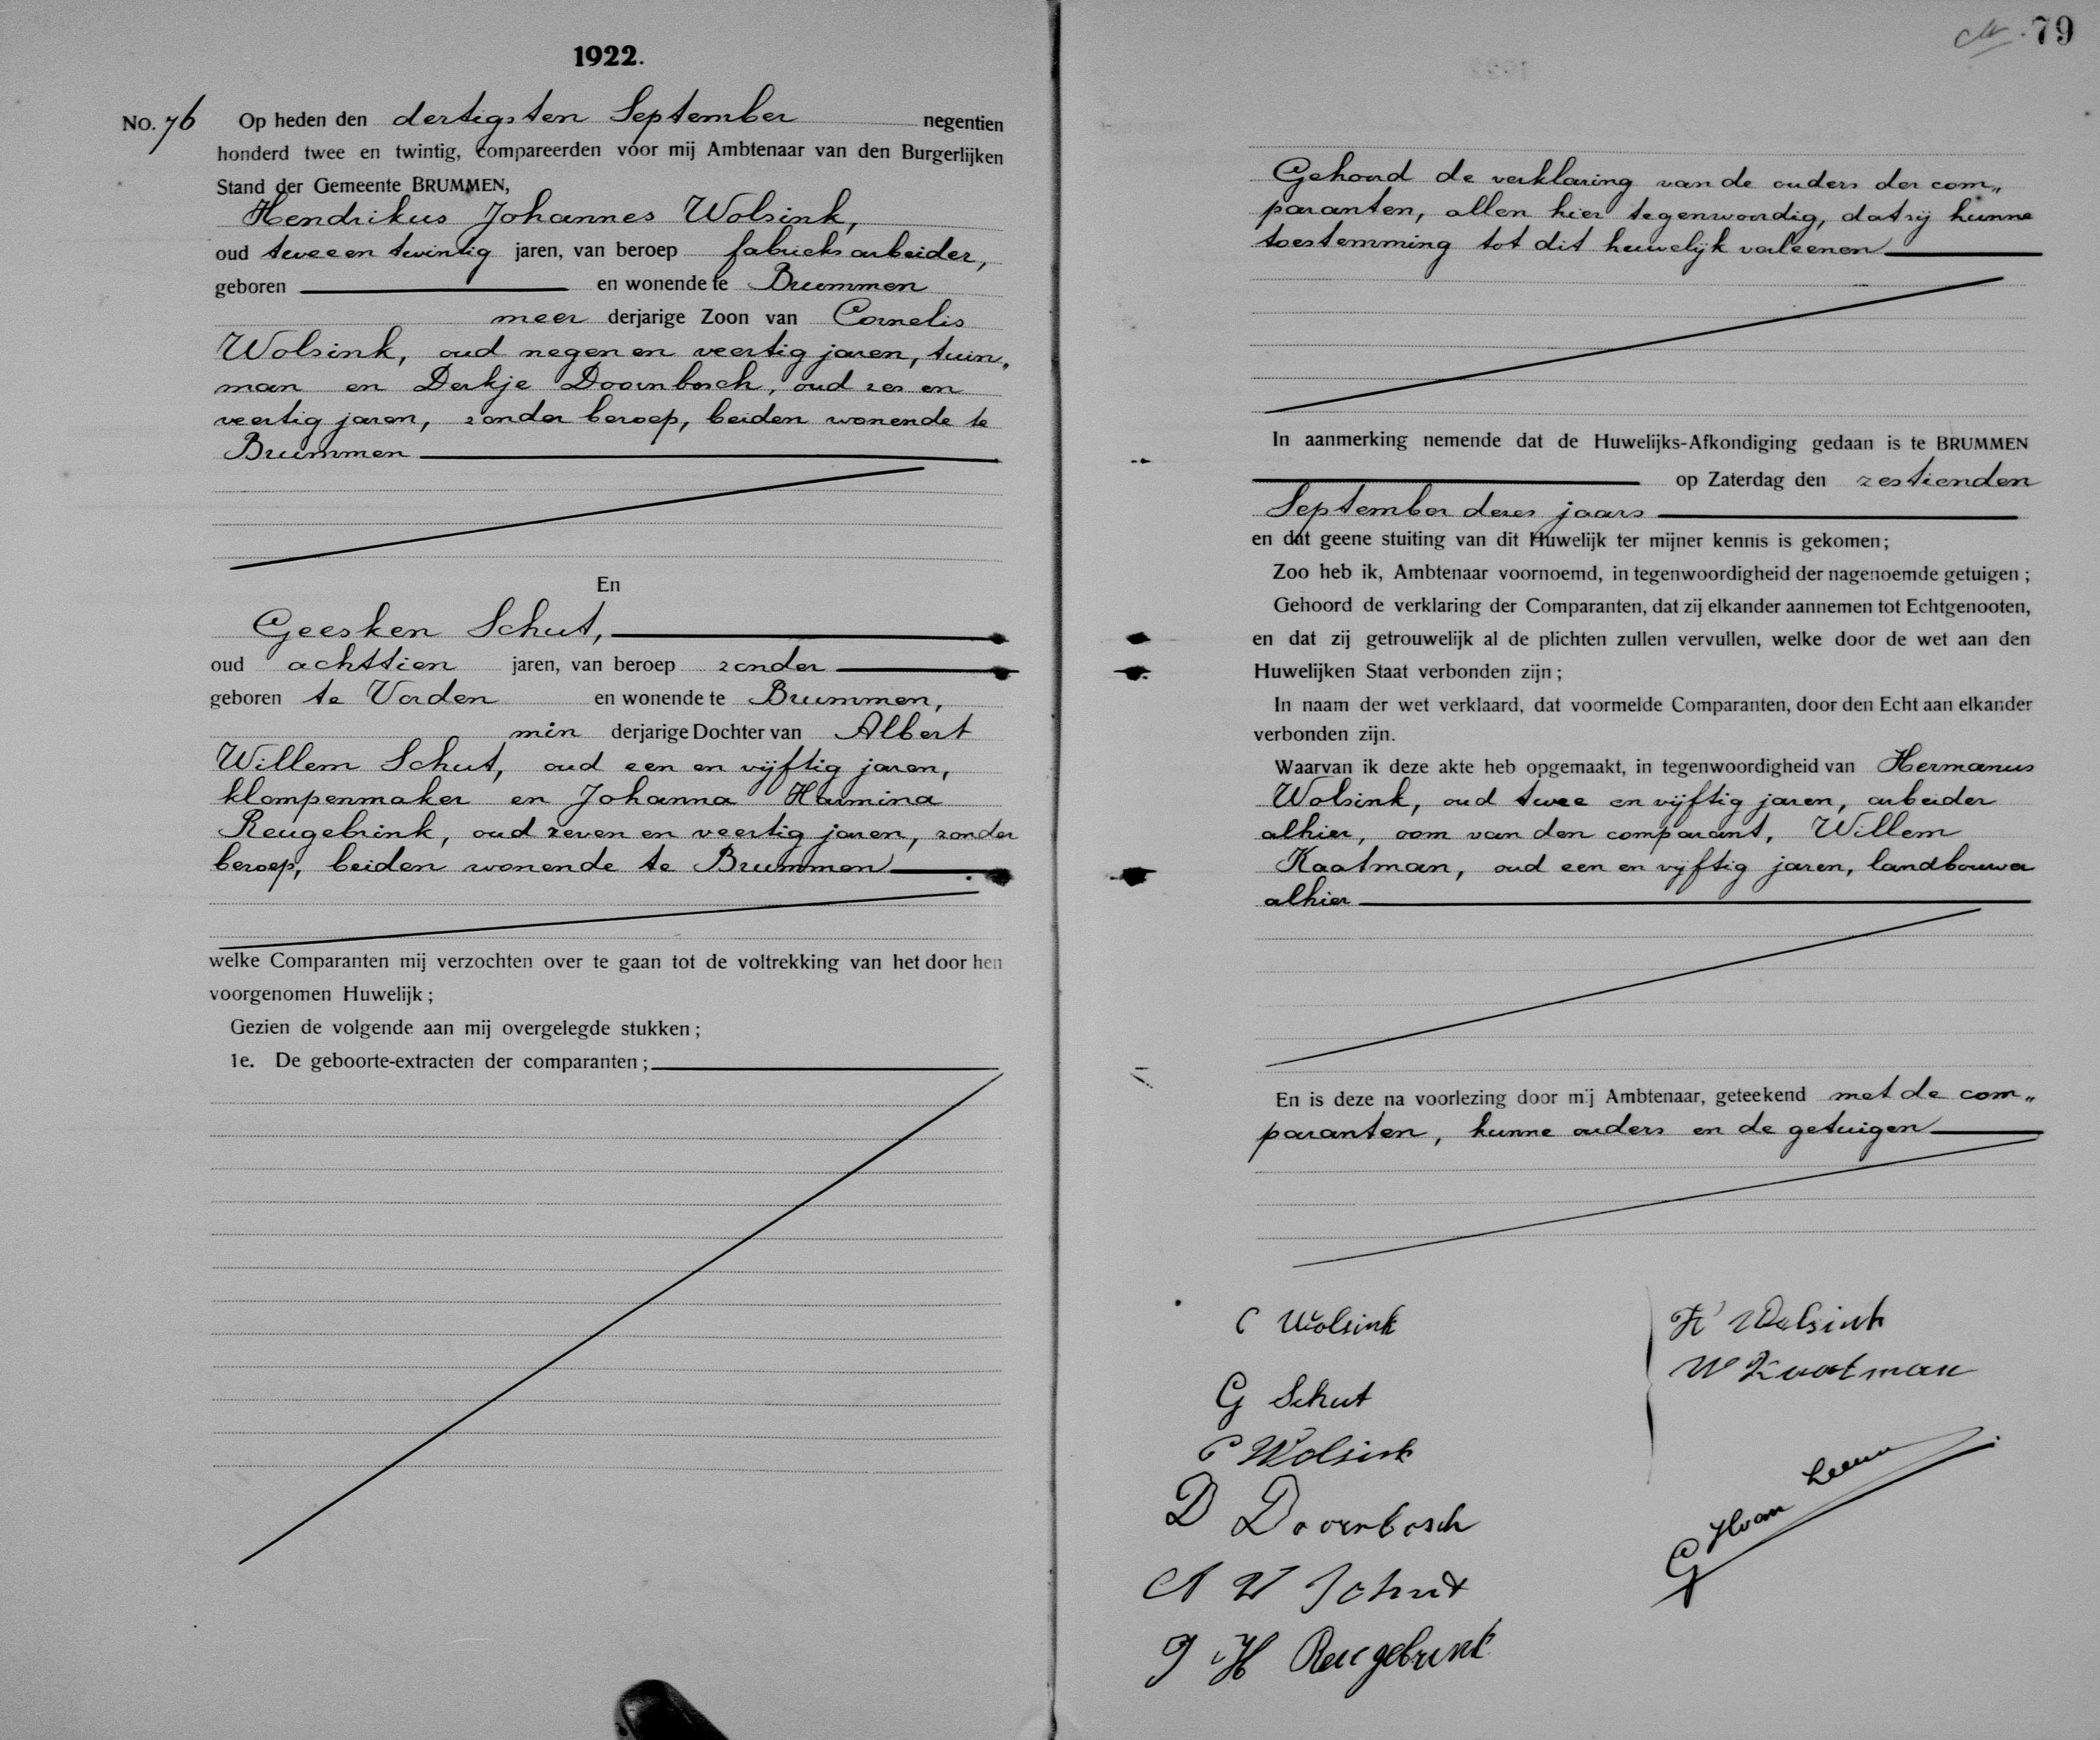 1922.
No. 76 Op heden den dertigsten September negentien
honderd twee en twintig, compareerden voor mij Ambtenaar van den Burgerlijken
Stand der Gemeente BRUMMEN,
Hendrikus Johannes Wolsink,
oud twee en twintig jaren, van beroep fabrieksarbeider,
geboren en wonende te Brummen
meer derjarige Zoon van Cornelis
Wolsink, oud negen en veertig jaren, tuin„
man en Derkje Doornbosch, oud zes en
veertig jaren, zonder beroep, beiden wonende te
Brummen
En
Geesken Schut,
oud achttien jaren, van beroep zonder
geboren te Vorden en wonende te Brummen,
min derjarige Dochter van Albert
Willem Schut, oud een en vijftig jaren,
klompenmaker en Johanna Harmina
Reugebrink, oud zeven en veertig jaren, zonder
beroep, beiden wonende te Brummen
welke Comparanten mij verzochten over te gaan tot de voltrekking van het door hen
voorgenomen Huwelijk;
Gezien de volgende aan mij overgelegde stukken;
1e. De geboorte-extracten der comparanten;
79
Gehoord de verklaring van de ouders der com„
paranten, allen hier tegenwoordig, dat zij hunne
toestemming tot dit huwelijk verleenen
In aanmerking nemende dat de Huwelijks-Afkondiging gedaan is te BRUMMEN
op Zaterdag den zestienden
September dezes jaars
en dat geene stuiting van dit Huwelijk ter mijner kennis is gekomen;
Zoo heb ik, Ambtenaar voornoemd, in tegenwoordigheid der nagenoemde getuigen;
Gehoord de verklaring der Comparanten, dat zij elkander aannemen tot Echtgenooten,
en dat zij getrouwelijk al de plichten zullen vervullen, welke door de wet aan den
Huwelijken Staat verbonden zijn;
In naam der wet verklaard, dat voormelde Comparanten, door den Echt aan elkander
verbonden zijn.
Waarvan ik deze akte heb opgemaakt, in tegenwoordigheid van Hermanus
Wolsink, oud twee en vijftig jaren, arbeider
alhier, oom van den comparant, Willem
Kaatman, oud een en vijftig jaren, landbouwer
alhier
En is deze na voorlezing door mij Ambtenaar, geteekend met de com„
paranten, hunne ouders en de getuigen
C Wolsink
G Schut
C Wolsink
D Doornbosch
A W Schut
J H Reugebrink
H Wolsink
W Kaatman